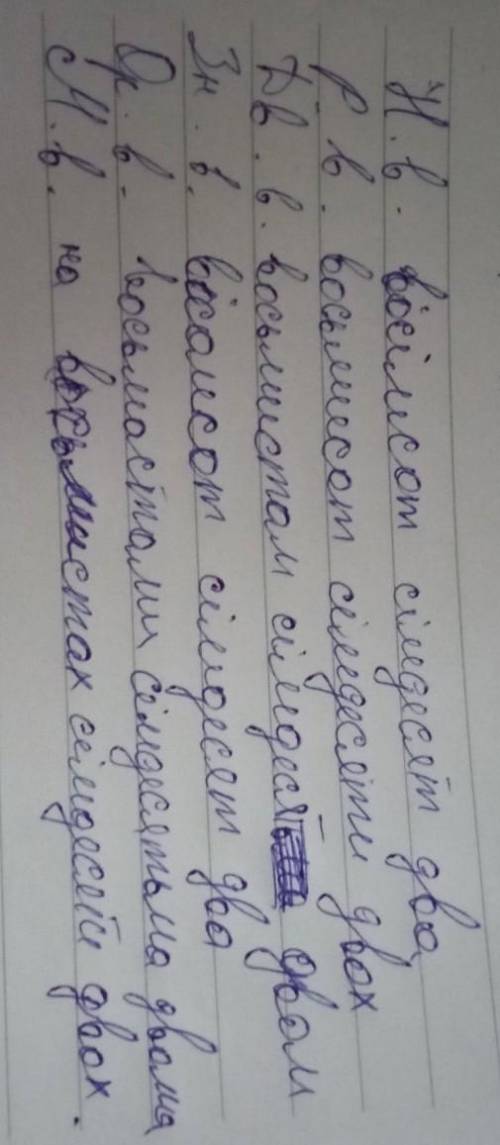 Н. в. вісімсот сімдесят два
Р. в. восьмисот сімдесяти двох
Дв. в. восьмистам сімдесят двом
Зн. в. вісомсот сімдесят два
Ор. в. восьмастами сімдесятьма двома
М. в. на восьмистах сімдесяти двох.